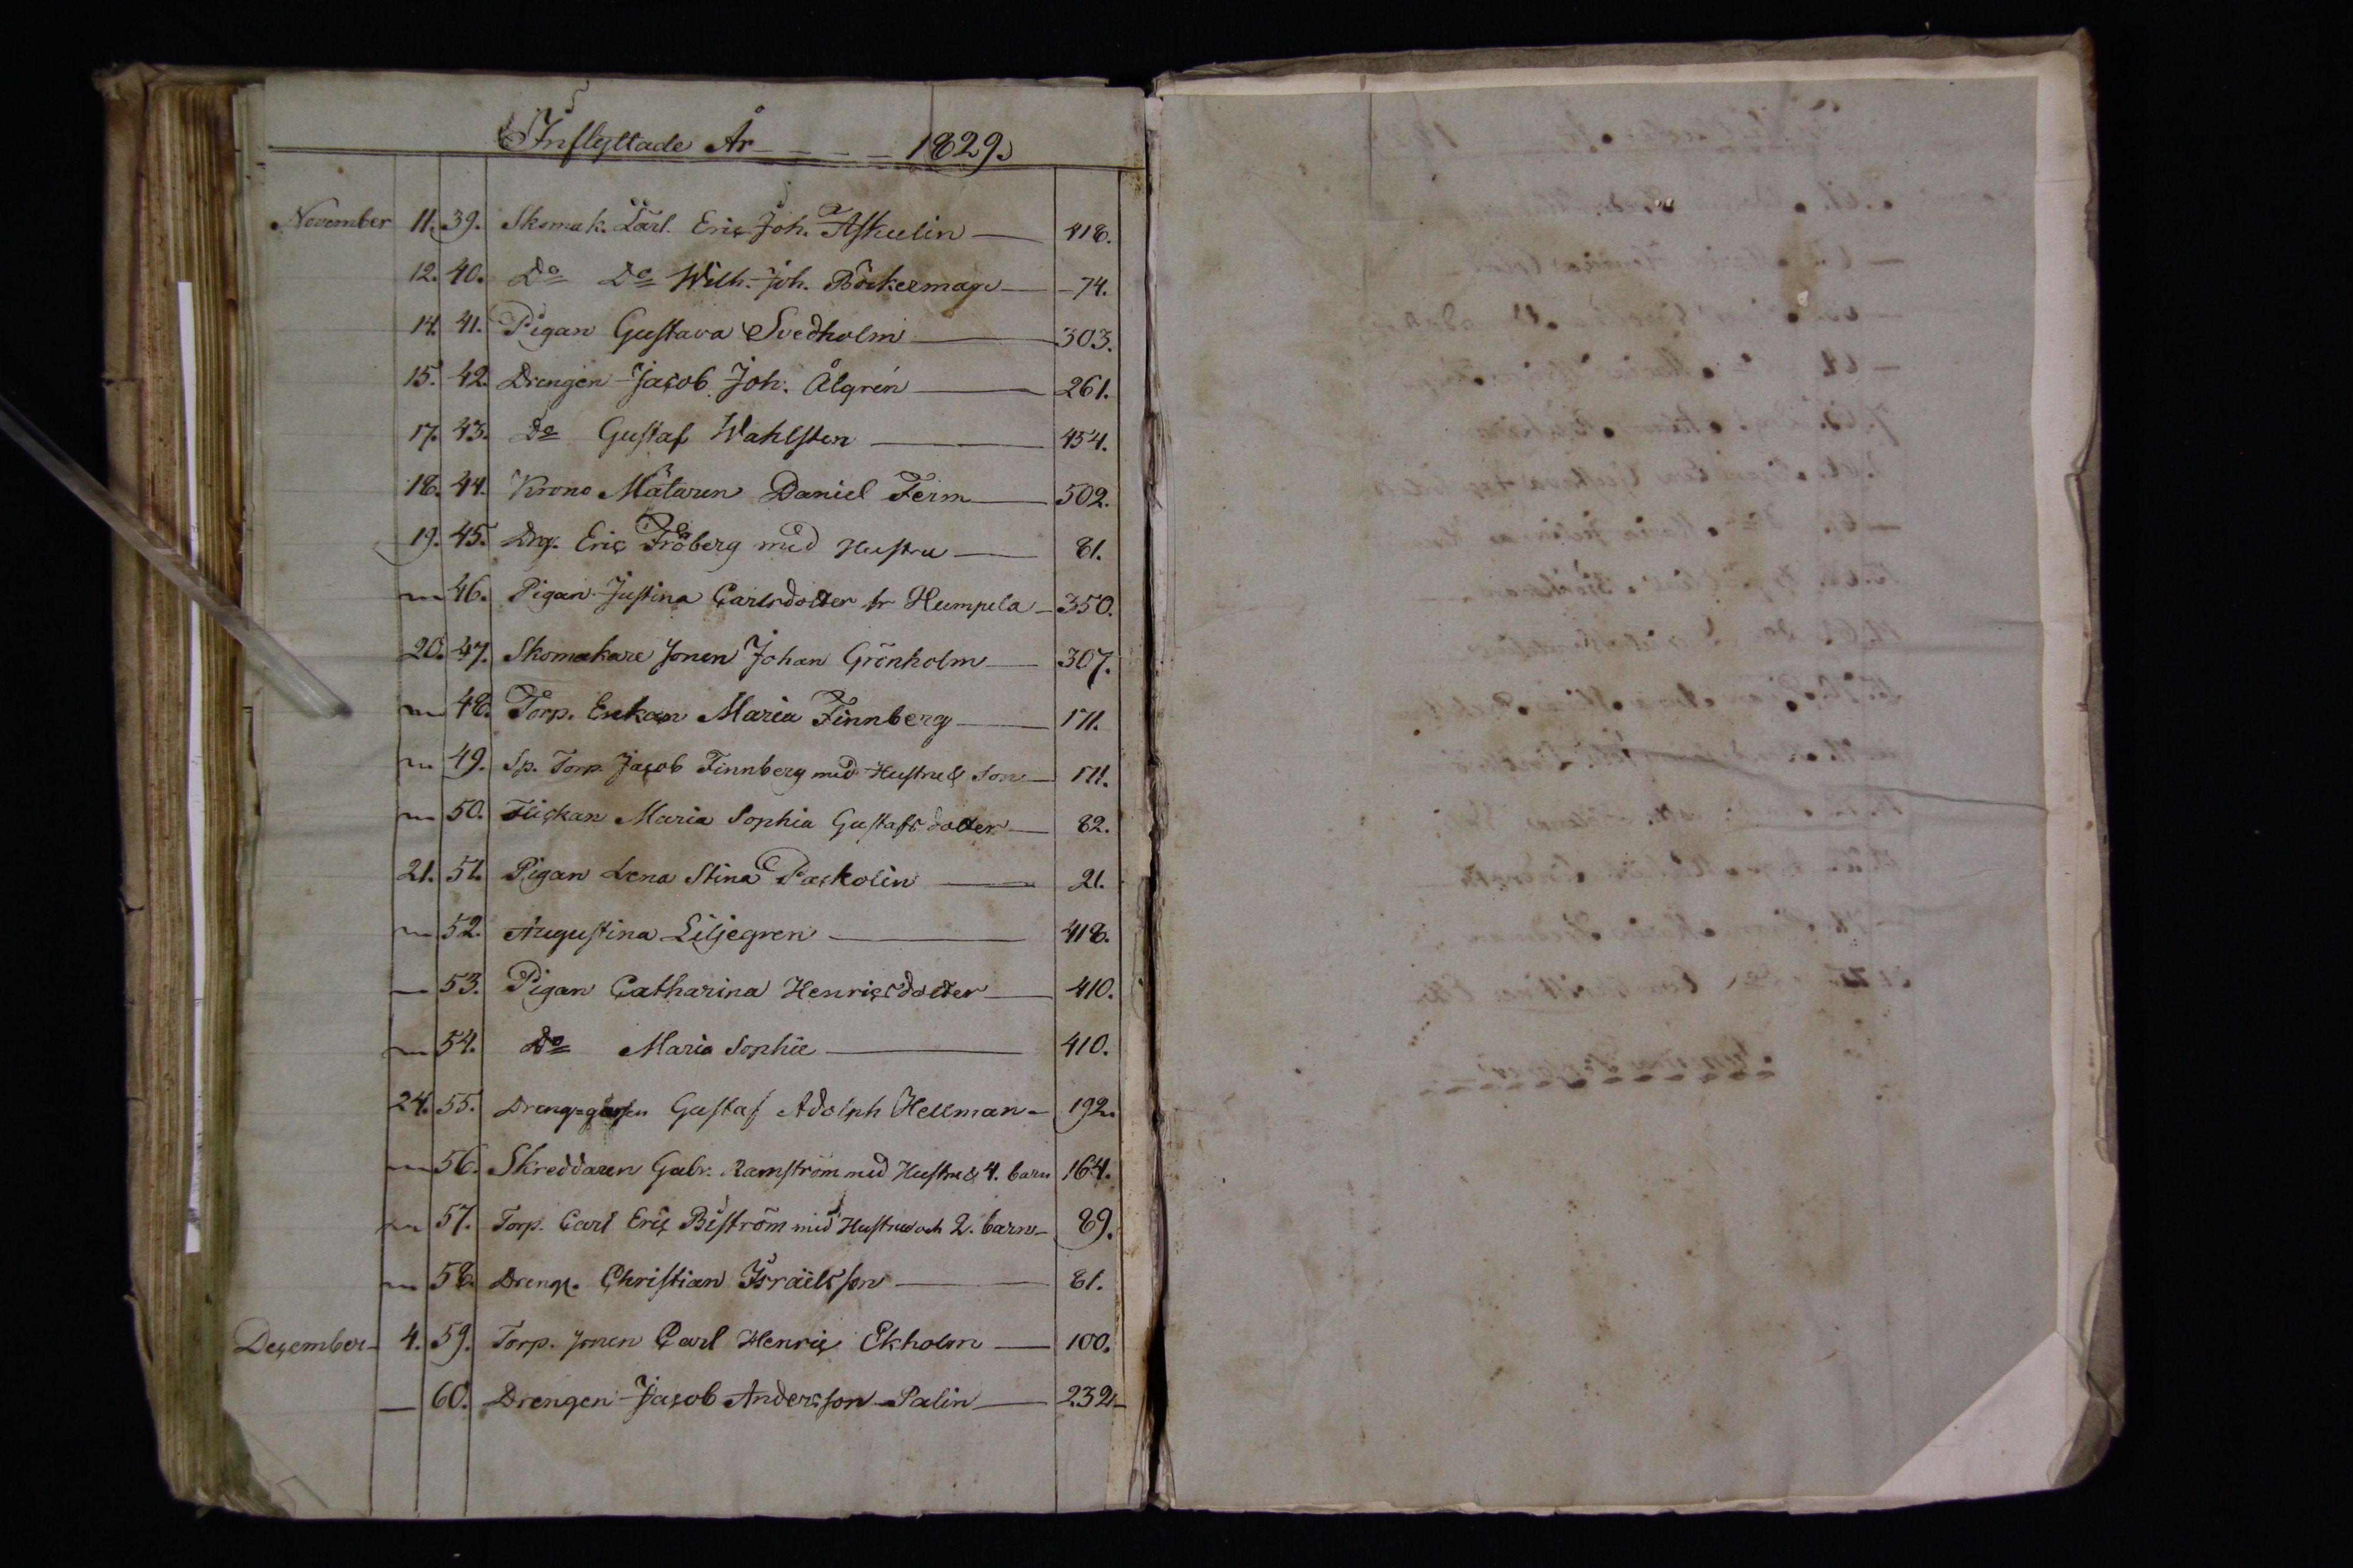 Inflyttade År - - - - 1829.
November 11. 39. Skomak. Lärl. Eric Joh. Askeelin — 418.
12. 40. Do Do Wilh. Joh. Böckerman — 74.
14. 41. Pigan Gustava Svedholm — 303.
15. 42. Drengen Jacob Joh. Ålgrén — 261.
17. 43. Do Gustaf Wahlsten — 454.
18. 44. Krono Mätaren Daniel Ferm — 502.
19. 45. Drg. Eric Fröberg med Hustru — 81.
— 46. Pigan Justina Carlsdotter fr Humpila — 350.
20. 47. Skomakare Sonen Johan Grönholm — 307.
— 48. Torp. Enkan Maria Finnberg — 171.
— 49. Sp. Torp. Jacob Finnberg med Hustru & Son — 171.
— 50. Flickan Maria Sophia Gustafs dotter — 82.
21. 51. Pigan Lena Stina Packolin — 21.
— 52. Augustina Liljegren — 418.
— 53. Pigan Catharina Henricsdotter — 410.
— 54. Do Maria Sophie — 410.
24. 55. Drenge Gustaf Adolph Hellman — 192.
— 56. Skreddaren Gabr. Ramström med Hustru & 4. barn 164.
— 57. Torp. Carl Eric Biström med Hustru och 2. barn — 89.
— 58. Dreng. Christian Israëlsson — 81.
December — 4. 59. Torp. Sonen Carl Henric Ekholm — 100.
— 60. Drengen Jacob Andersson Palin — 232